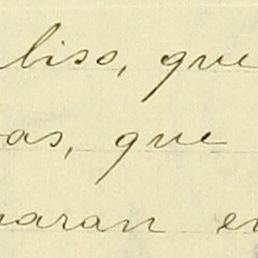 liso, que
as, que
naran en